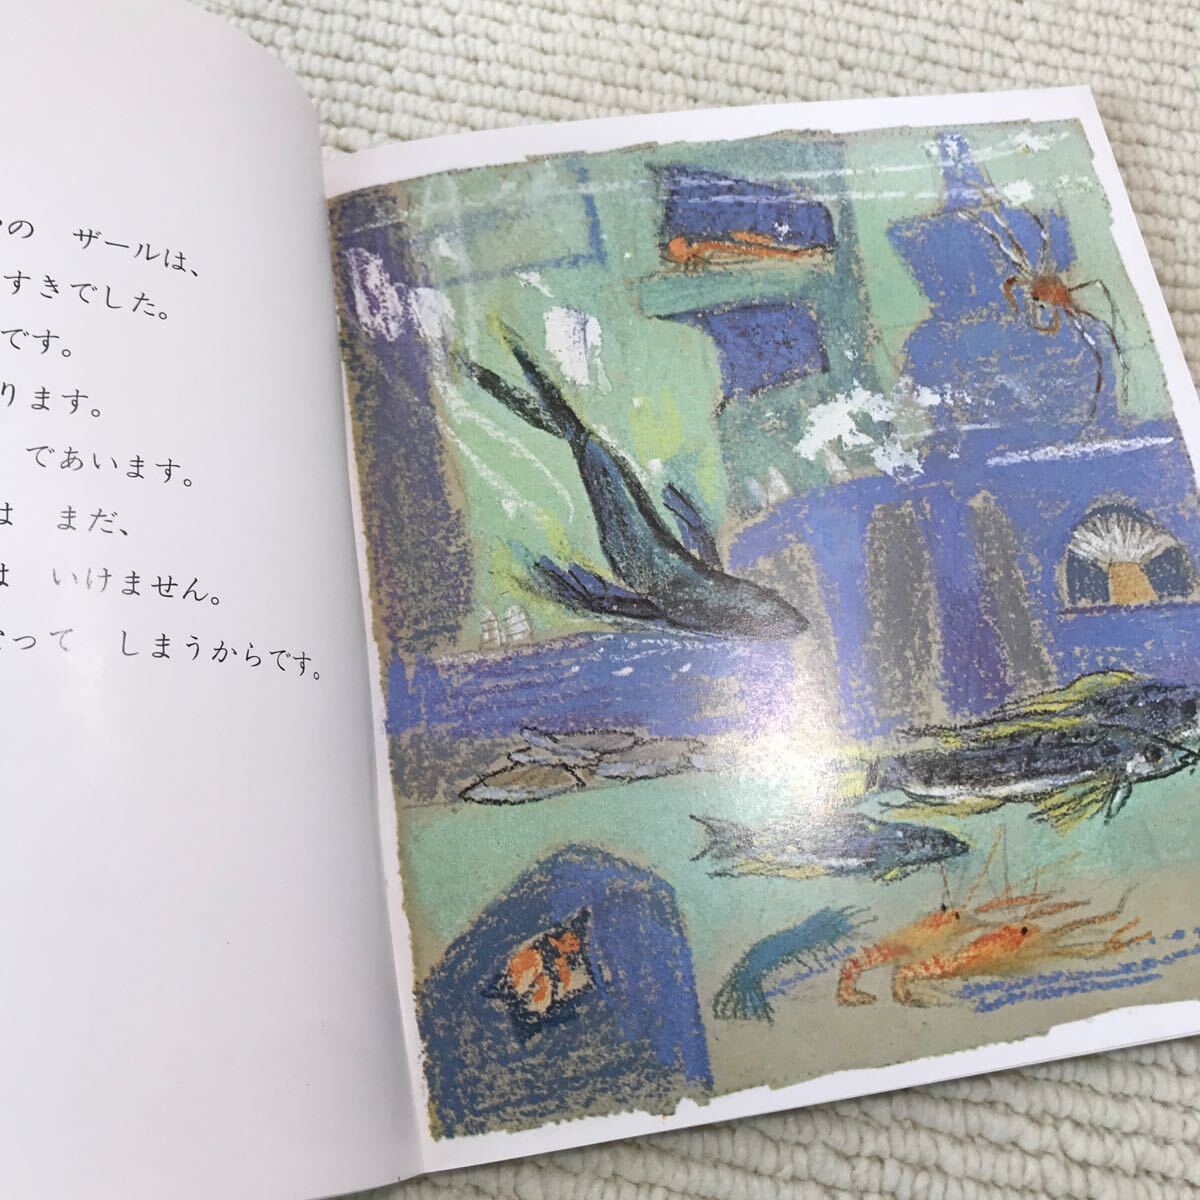 の ザールは、
すきでした。
です。
ります。
であいます。
は まだ、
は いけません。
って しまうからです。